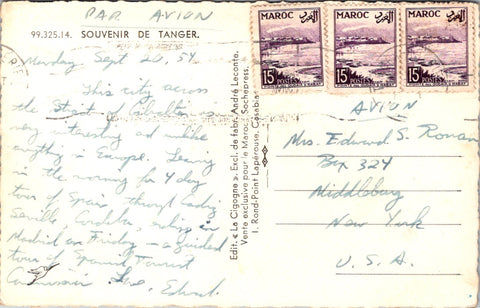 PAR AVION
99.325.14. SOUVENIR DE TANGER.
Monday Sept 20, 54
This city across
the Strait of Gibraltar
very interesting and unlike
anything in Europe. Leaving
in the morning for 4 day
tour of Spain through Cadiz
Seville, Cordoba, ending in
Madrid on Friday - a guided
tour of Spanish Tourist
Commission Love, Edward.
Edit. « La Cigogne ». Excl. de fabr. André Leconte.
Vente exclusive pour le Maroc: Sochepress,
1. Rond-Point Lapérouse, Casablanca
MAROC المغرب
15F POSTES
MAROC المغرب
15F POSTES
MAROC المغرب
15F POSTES
AVION
Mrs. Edward S. Ronan
Box 324
Middleburg
New York
U. S. A.